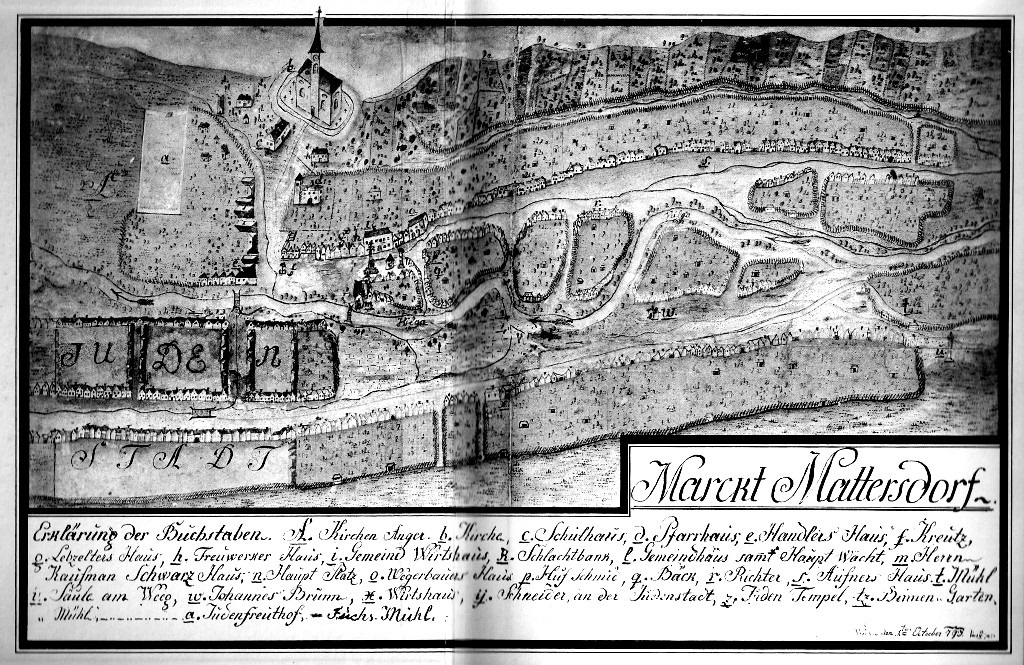 JUDEN
STADT
Marckt Mattersdorf
Erklärung der Buchstaben. A. Kirchen Anger. b. Kirche, c. Schulhaus, d. Pfarrhaus, e. Handlers Haus, f. Kreutz,
g. Lebzelters Haus, h. Treuwerker Haus, i. Gemeind Wirtshaus, k. Schlachtbank, l. Gemeindhaus samt Haupt Wacht, m. Herrn
Kaufman Schwarz Haus, n. Haupt Platz, o. Wegerbauer Haus p. Huf Schmid, q. Bäck, r. Richter, s. Aufners Haus t. Mühl
Säule am Weeg, w. Johannes Brunn, x. Wirtshaus, y. Schneider, an der Judenstadt, z. Juden Tempel, tz. Beinen-Garten,
Mühl, a. Judenfreuthof, Fuchs Mühl.
October